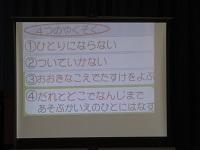 4つのやくそく
①ひとりにならない
②ついていかない
③おおきなこえでたすけをよぶ
④だれとどこでなんじまで
あそぶかいえのひとにはなす